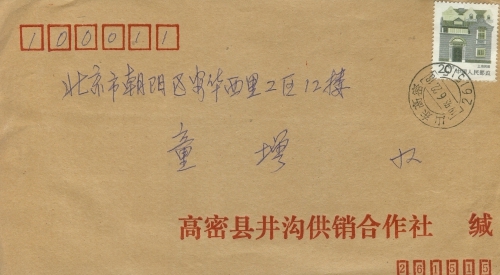 100011
20 中国人民邮政
北京市朝阳区安华西里2区12楼
童增 收
高密县井沟供销合作社 缄
261515